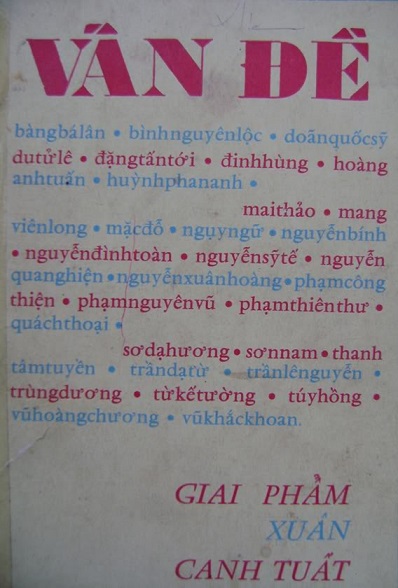 VẤN ĐỀ
bàngbálân • bìnhnguyênlộc • doãnquốcsỹ
dutửlê • đặngtấntới • đinhhùng • hoàng
anhtuấn • huỳnhphananh •
maithảo • mang
viênlong • mặcđỗ • ngụyngữ • nguyễnbính
• nguyễnđìnhtoàn • nguyễnsỹtế • nguyễn
quanghiện • nguyễnxuânhoàng • phạmcông
thiện • phạmnguyênvũ • phạmthiênthư •
quáchthoại •
sơdạhương • sơnnam • thanh
tâmtuyền • trầndạtừ • trầnlênguyễn •
trùngdương • từkếtường • túyhồng •
vũhoàngchương • vũkhắckhoan.
GIAI PHẨM
XUÂN
CANH TUẤT